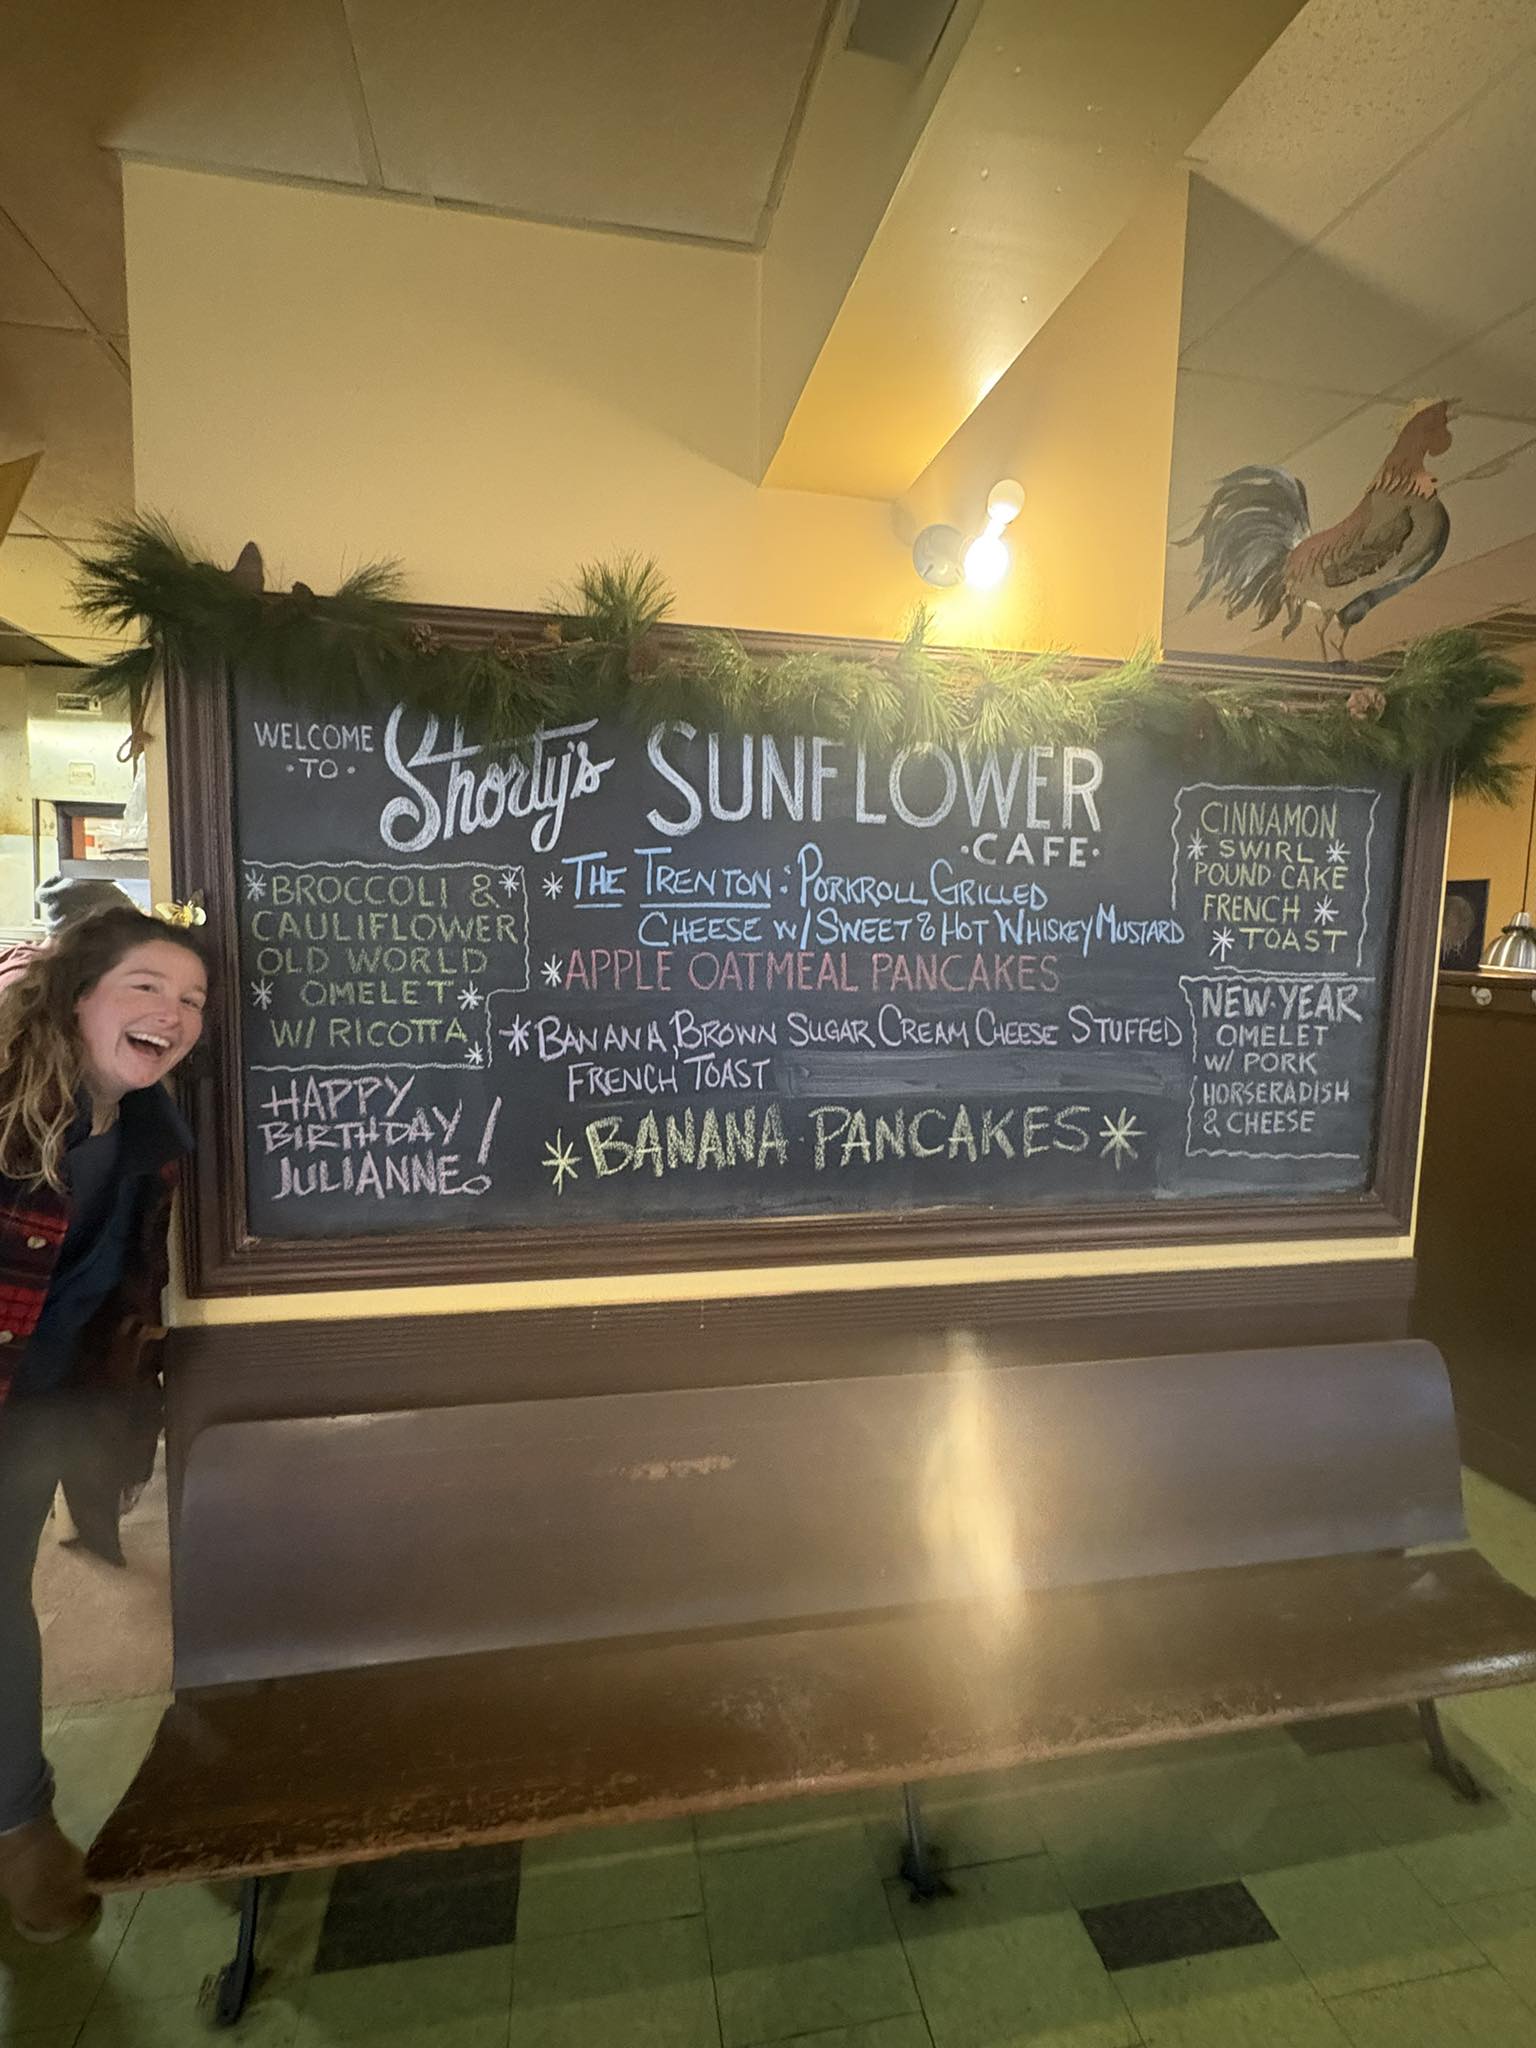 WELCOME
·TO·
Shorty's SUNFLOWER
·CAFE·
*BROCCOLI &*
CAULIFLOWER
OLD WORLD
* OMELET *
W/ RICOTTA
*
HAPPY
BIRTHDAY
JULIANNE!
*THE TRENTON: PORKROLL GRILLED
CHEESE W/ SWEET & HOT WHISKEY MUSTARD
*APPLE OATMEAL PANCAKES
*BANANA, BROWN SUGAR CREAM CHEESE STUFFED
FRENCH TOAST
*BANANA·PANCAKES*
CINNAMON
* SWIRL *
POUND CAKE
FRENCH *
* TOAST
NEW·YEAR
OMELET
W/ PORK
HORSERADISH
& CHEESE